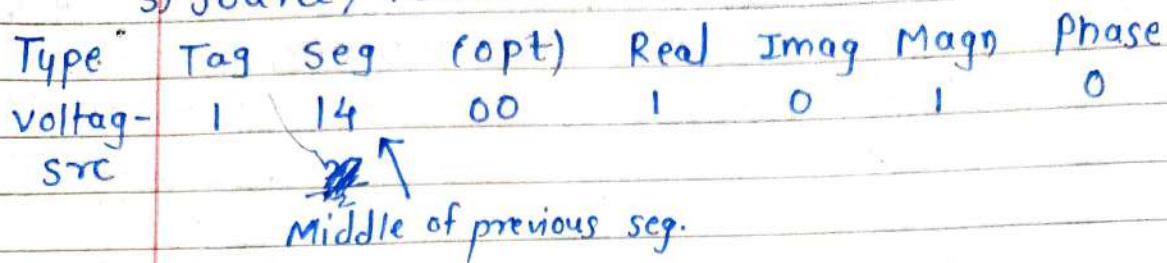 Type Tag Seg (opt) Real Imag Magn Phase
voltag- 1 14 00 1 0 1 0
src
Middle of previous seg.